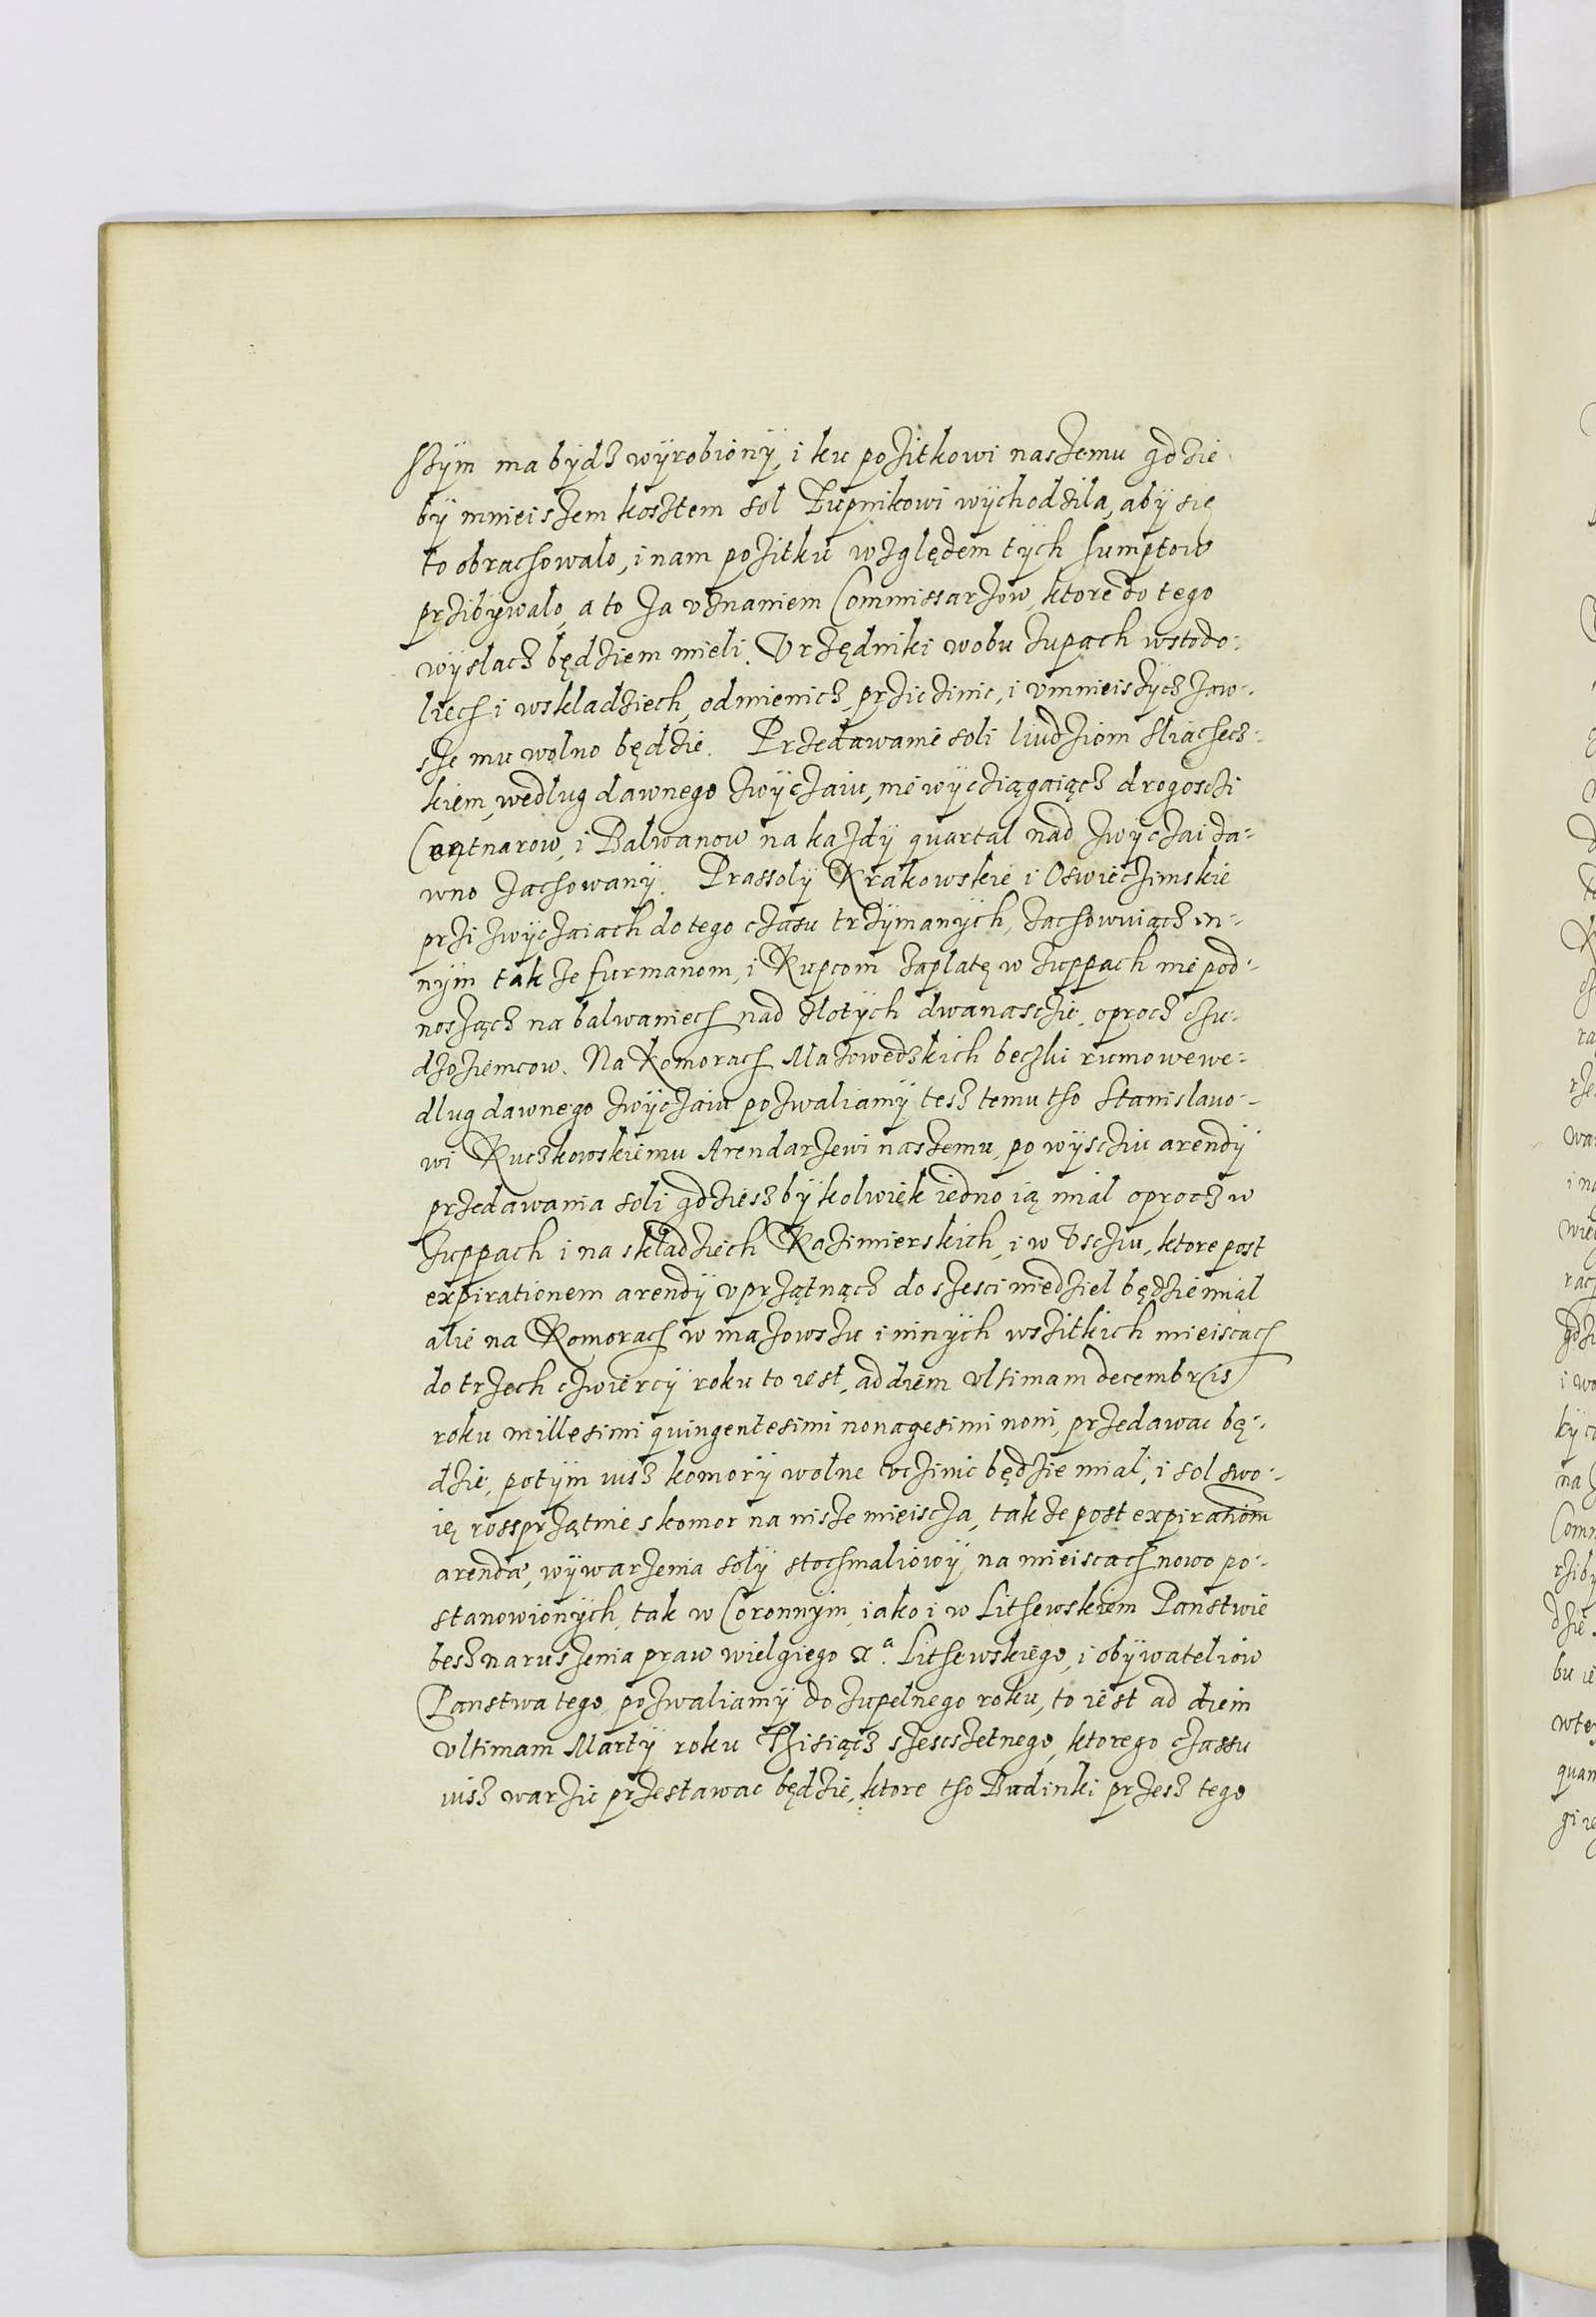 szym ma bydz wyrobiony, i ku pozitkowi naszemu gdzie
by mnieiszem kosztem sol Zupnikowi wychodzila, aby się
to obrachowalo, i nam pozitku względem tych sumptow
przibywalo, a to za uznaniem Commissarzow, ktore do tego
wyslacz będziem mieli. Urzędniki wobu zupach wstodo-
liech i wskladziech, odmienicz, prziczinic, i umnieiszycz zaw-
sze mu wolno będzie. Przedawanie soli liudziom sliachecz-
kiem, według dawnego zwyczaiu, nie wycziągaiącz drogosczi
Centnarow, i Balwanow na kazdy quartal nad zwyczai da-
wno zachowany. Prassoly Krakowskie i Oswieczimskie
przi zwyczaiach do tego czasu trzymanych, zachowuiącz in-
nym takze furmanom, i Kupcom zaplatę w zuppach nie pod-
noszącz na balwaniech nad zlotych dwanasczie, oprocz czu-
dzoziemcow. Na Komorach Mazowedzkich beczki rumowe we-
dlug dawnego zwyczaiu pozwaliamy tesz temu tho Stanislauo-
wi Ruczkowskiemu Arendarzewi naszemu, po wyscziu arendy
przedawania soli gdzieszby kolwiek iedno ią mial oprocz w
zuppach i na skladziech Kazimierskich, i w UsczIu, ktore post
expirationem arendy uprzątnącz do szesci niedziel będzie mial
alie na Komorach w mazowszu i ninych wszitkich mieiscach
do trzech czwiercy roku to iest, ad diem ultimam decembris
roku millesimi quingentesimi nonagesimi noni, przedawac bę-
dzie, potym iusz komory wolne uczinic będzie mial, i sol swo-
ię rossprzątnie s komor na nisze mieiscza, takze post expirationem
arendae, wywarzenia soly stochmaliowy na mieiscach nowo po-
stanowionych, tak w Coronnym, iako i w Lithewskiem Panstwie
besz naruszenia praw wielgiego Xa. Lithewskiego, i obywateliow
Panstwa tego, pozwaliamy do zupelnego roku, to iest ad diem
ultimam Marty roku Tiziącz szescsetnego, ktorego czassu
iusz warzic przestawac będzie, ktore tho Budinki przesz tego